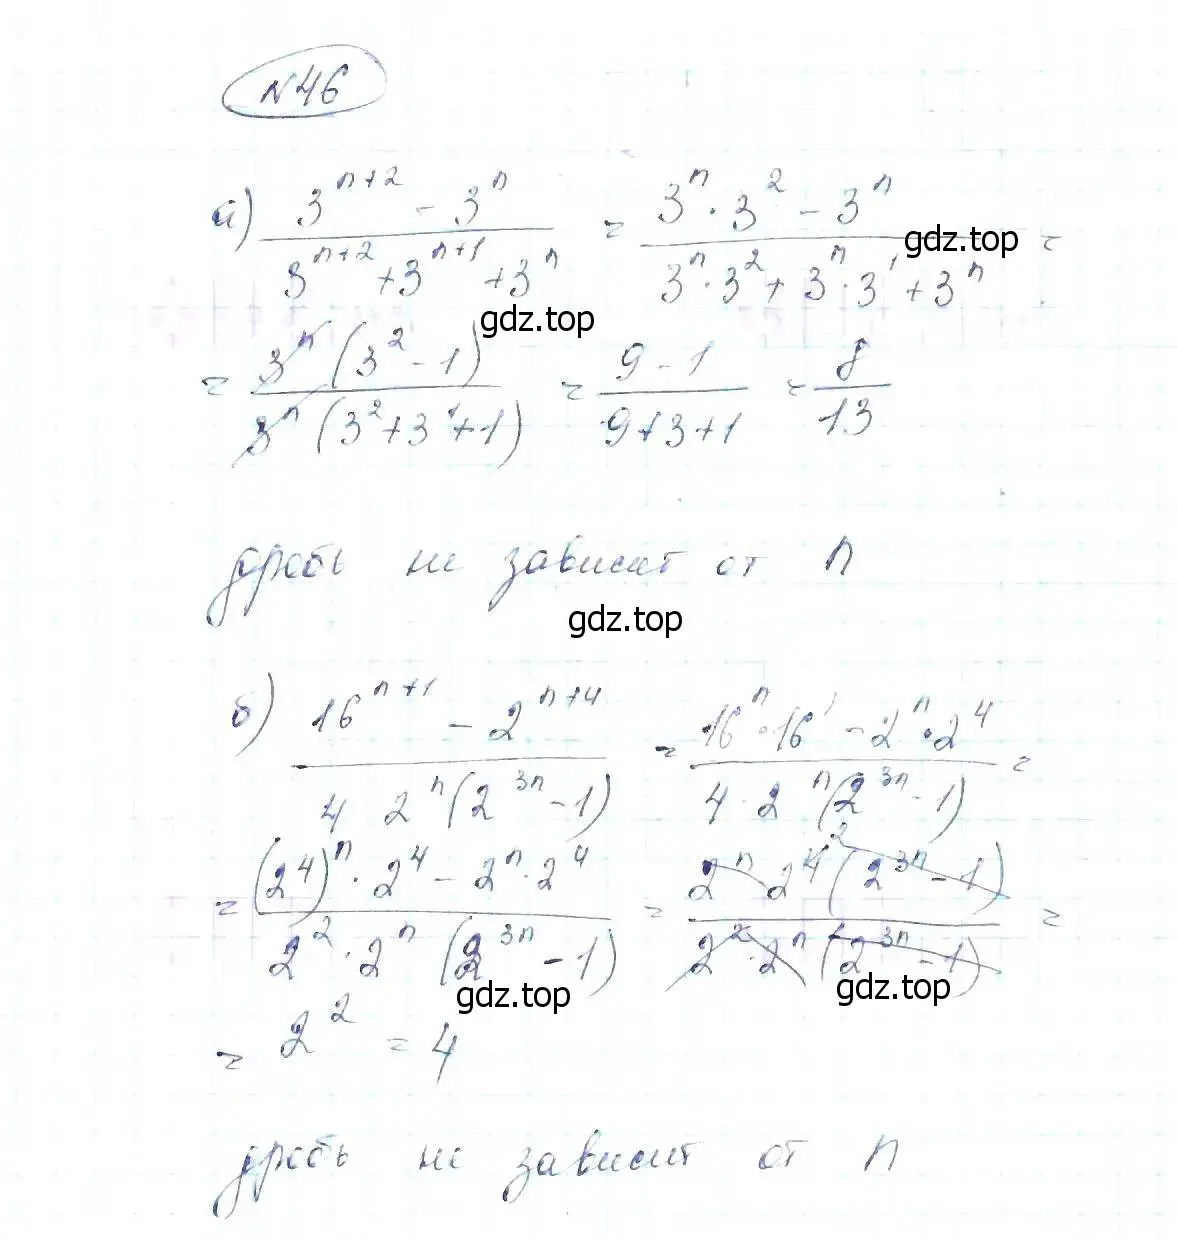 №46
а) (3^(n+2) - 3^n)/(3^(n+2) + 3^(n+1) + 3^n) = (3^n · 3^2 - 3^n)/(3^n · 3^2 + 3^n · 3^1 + 3^n) =
gdz.top
gdz.top
= (3^n (3^2 - 1))/(3^n (3^2 + 3^1 + 1)) = (9 - 1)/(9 + 3 + 1) = 8/13
дробь не зависит от n
gdz.top
б) (16^(n+1) - 2^(n+4))/(4 · 2^n (2^(3n) - 1)) = (16^n · 16^1 - 2^n · 2^4)/(4 · 2^n (2^(3n) - 1)) =
= ((2^4)^n · 2^4 - 2^n · 2^4)/(2^2 · 2^n (2^(3n) - 1)) = (2^n 2^4 (2^(3n) - 1))/(2^2 · 2^n (2^(3n) - 1)) =
gdz.top
gdz.top
= 2^2 = 4
дробь не зависит от n